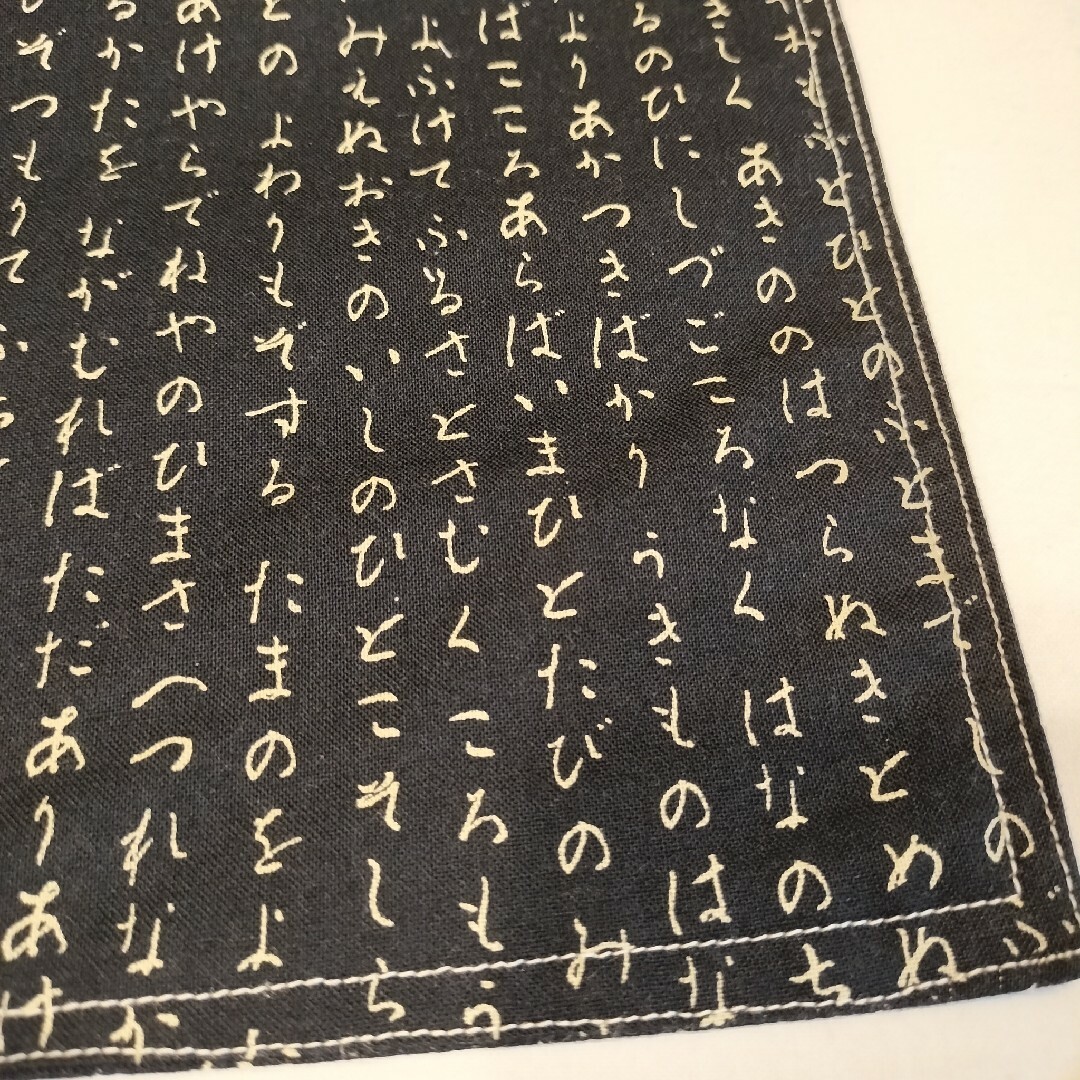 やおもふとひとのふとまで しのぶ
きしく あきののはつらぬきとめぬ
るのひにしづごころなく はなのち
よりあかつきばかり うきものはな
ばこころあらばいまひとたびのみ
よふけてふるさとさむく ころもう
みえぬおきのいしのひとこそしら
との よわりもぞする たまのをよ た
あけやらでねやのひまさへつれなか
るかたを ながむればただありあけ
ぞつもりて